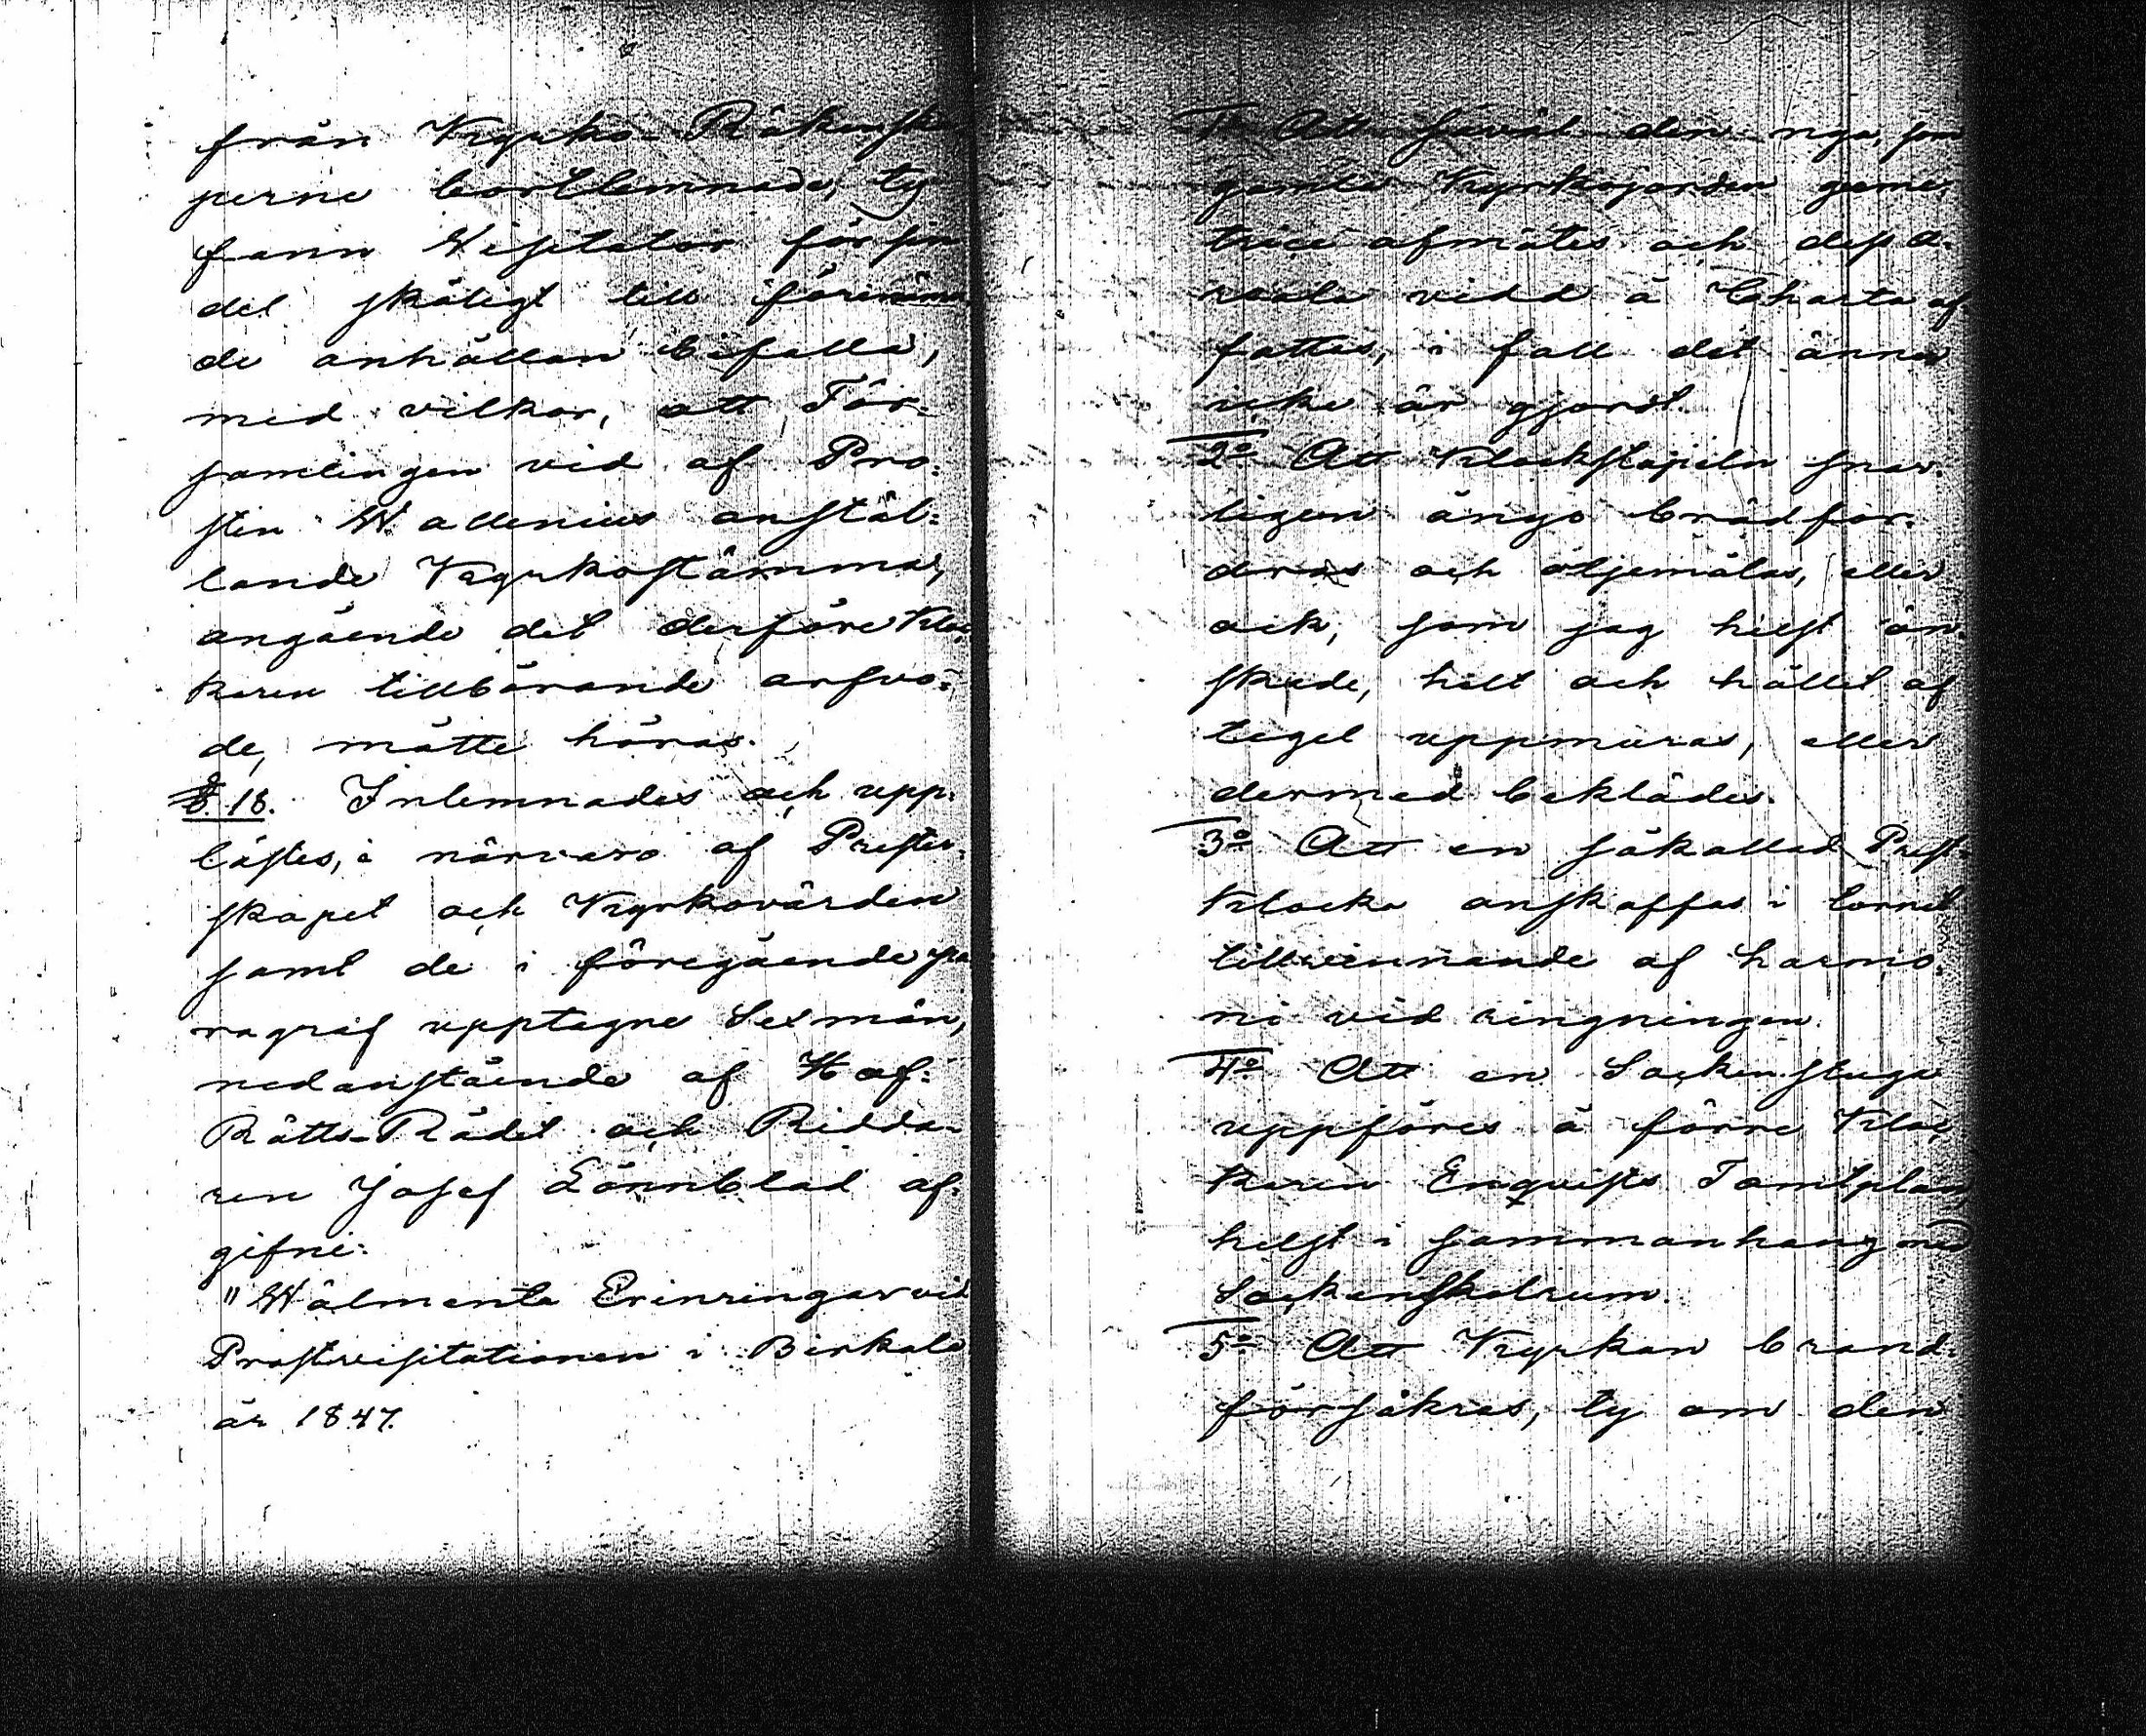 från Kyrko-Räkenska
perne bortlemnade, ty
fann Visitator för sin
del skäligt till förenämn
de anhållan bifalla,
med vilkor, att För-
samlingen vid af Pro-
sten Wallenius anstäl-
lande Kyrkostämma,
angående det derföre Kloc
karen tillbörande arfvo-
de, måtte höras.
§.18. Inlemnades och upp-
lästes, i närvaro af Prester-
skapet och Kyrkovärden
samt de i föregående pa
ragraf upptagne Sexmän,
nedanstående af Hof-
Rätts-Rådet och Ridda-
ren Josef Lönnblad af-
gifne:
"Wälmenta Erinringar vid
Prostvisitationen i Birkala
år 1847.
1o Att såväl den nya, som
gamla Kyrkojorden geome-
trice afmätes och dess a-
reala vidd å Charta af
fattas, i fall det ännu
icke är gjordt.
2o Att Klockstapeln snar-
ligen ånyo brädfor-
dras och oljemålas, eller
ock, som jag helst ön-
skade, helt och hållet af
tegel uppmuras, eller
dermed beklädes.
3o Att en såkallad Prest-
Klocka anskaffas i tornet
tillvinnande af harmo-
ni vid ringningen.
4o Att en Sockenstuga
uppföres å förre Kloc
karen Enqvists Tomtplan
helst i sammanhang med
Sockenskolrum.
5o Att Kyrkan brand-
försäkras, ty om den